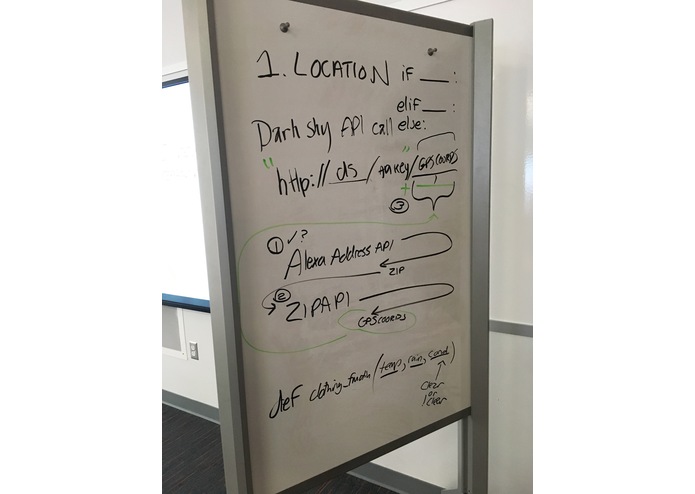 1. LOCATION if ___ :
elif ___ :
Dark sky API call else:
"http://ds/API KEY/" GPS COORDS
+
3
1 ✓?
Alexa Address API
ZIP
2
ZIPAPI
GPS COORDS
def clothing_ (temp, rain, cond)
clear
or
!clear